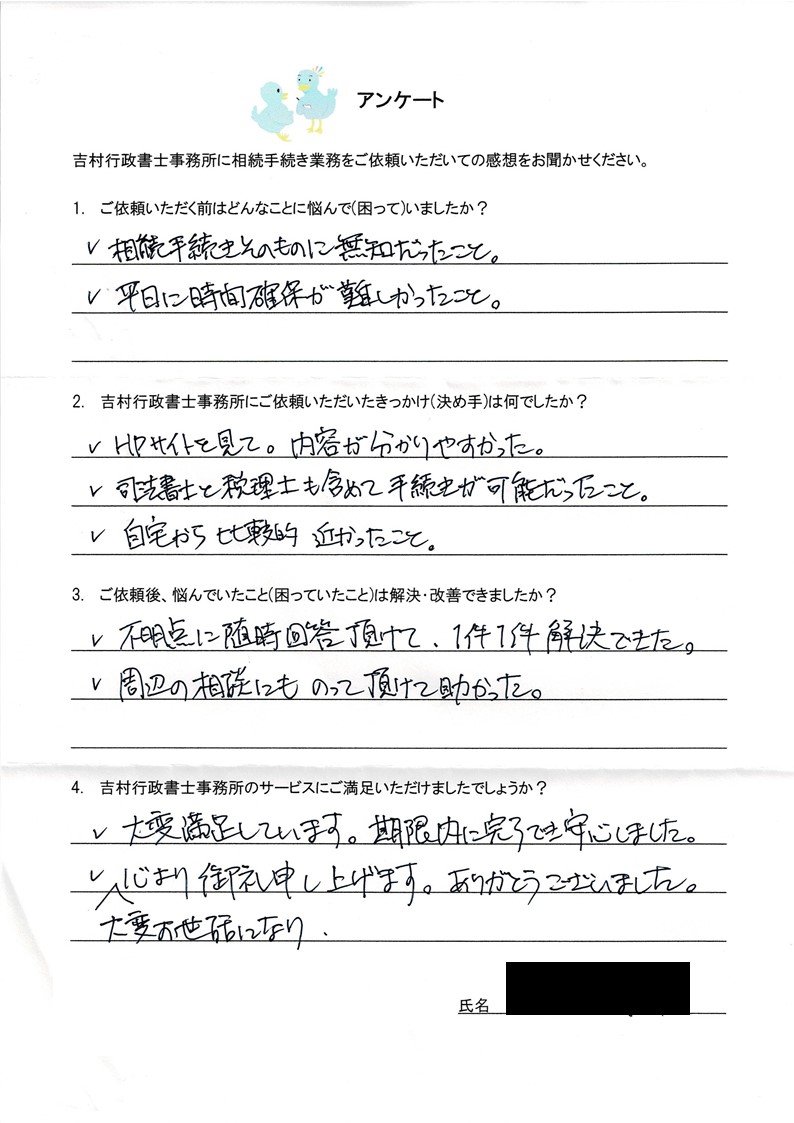 アンケート
吉村行政書士事務所に相続手続き業務をご依頼いただいての感想をお聞かせください。
1. ご依頼いただく前はどんなことに悩んで(困って)いましたか？
✓ 相続手続きそのものに無知だったこと。
✓ 平日に時間確保が難しかったこと。
2. 吉村行政書士事務所にご依頼いただいたきっかけ(決め手)は何でしたか？
✓ HPサイトを見て。内容が分かりやすかった。
✓ 司法書士と税理士も含めて手続きが可能だったこと。
✓ 自宅から比較的近かったこと。
3. ご依頼後、悩んでいたこと(困っていたこと)は解決・改善できましたか？
✓ 不明点に随時回答頂けて、1件1件解決できた。
✓ 周辺の相談にものって頂けて助かった。
4. 吉村行政書士事務所のサービスにご満足いただけましたでしょうか？
✓ 大変満足しています。期限内に完了でき安心しました。
✓ 心より御礼申し上げます。ありがとうございました。
大変お世話になり、
氏名